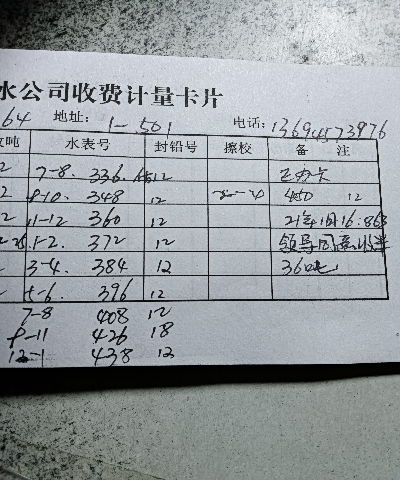 水公司收费计量卡片
64 地址: 1-501 电话: 13694573976
吨 水表号 封铅号 擦校 备 注
2 7-8. 336. 12
2 9-10. 348 12 450 12
2 11-12 360 12 21年1月16.868
1-2. 372 12 领导同意
3-4. 384 12 360吨
5-6. 396 12
7-8 408 12
9-11 426 18
12-1 438 12